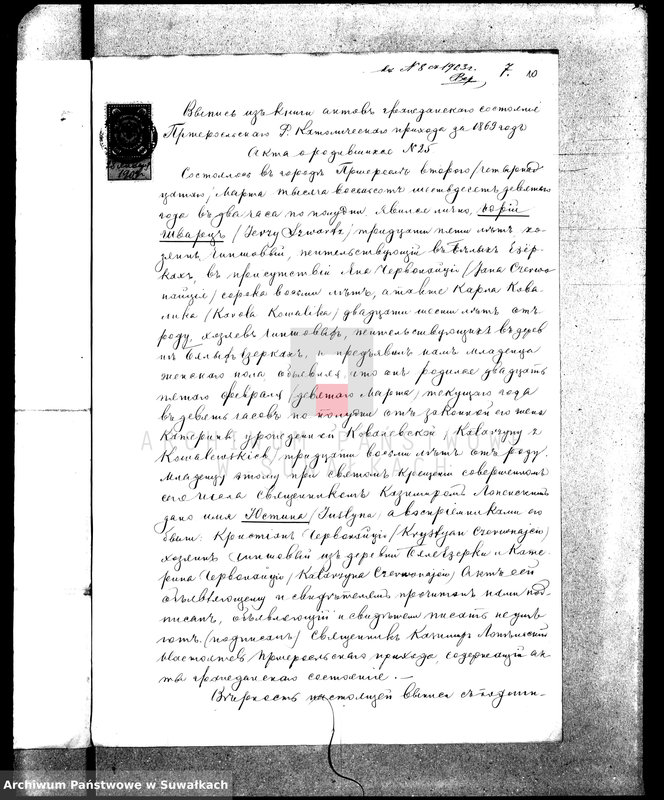 къ № 8 съ 1903 г.
7. 10
1904
Выпись изъ книги актовъ гражданскаго состоянія
Пржеросльскаго Р. Католическаго прихода за 1869 годъ
Акта о родившихся № 25
Состоялось въ городѣ Пржеросль второго (четырнад
цатаго) Марта тысяча восемьсотъ шестьдесятъ девятаго
года въ два часа по полудни. Явился лично, Юрій
Шварцъ (Jerzy Szwartz) тридцати пяти лѣтъ хо-
зяинъ чиншовый, жительствующій въ Бѣлыхъ Езер-
кахъ, въ присутствіи Яна Червонайція (Jana Czerwo
najcia) сорока восьми лѣтъ, а также Карла Кова
лика (Karola Kowalika) двадцати шести лѣтъ отъ
роду, хозяевъ чиншовыхъ, жительствующихъ въ дерев
нѣ Бялыхъ Езеркахъ, и предъявилъ намъ младенца
женскаго пола объявляя, что онъ родился двадцать
пятаго февраля (девятаго Марта) текущаго года
въ девять часовъ по полудни отъ законной его жены
Катерины урожденной Ковалевской Katarzyny z
Kowalewskich, тридцати восьми лѣтъ отъ роду.
Младенцу этому при святомъ Крещеніи совершенномъ
сего числа священникомъ Казимиромъ
дано имя Юстина (Justyna) а воспріемниками его
были: Кристіанъ Червонайцій (Krystyan Czerwonajć)
хозяинъ чиншовый изъ деревни Бялеезерки и Кате-
рина Червонайція (Katarzyna Czerwonajć) Актъ сей
объявляющему и свидѣтелямъ прочитанъ нами под-
писанъ, объявляющій и свидѣтели писать не умѣ
ютъ. (подписанъ) Священникъ Казимиръ
Настоятель Пржеросльскаго прихода, содержащій ак-
ты гражданскаго состоянія. —
Вѣрность настоящей выписи съ подлин-
ARCHIWUM PAŃSTWOWE
W SUWAŁKACH
Archiwum Państwowe w Suwałkach